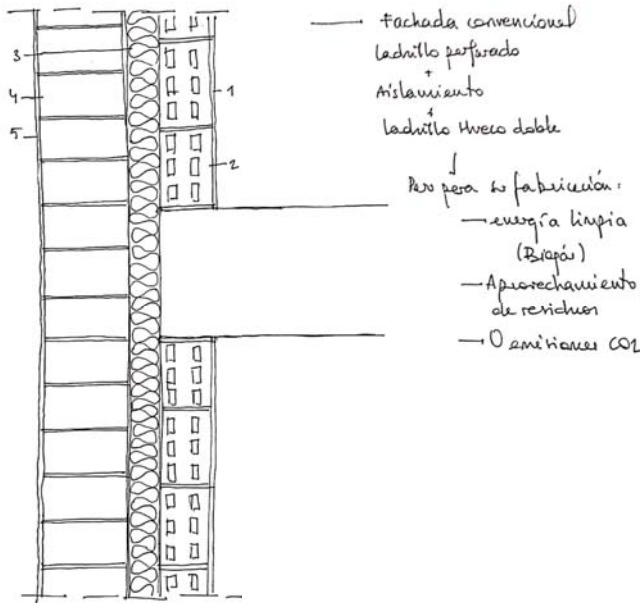 Fachada convencional
Ladrillo perforado
+
Aislamiento
+
Ladrillo Hueco doble
Pero para su fabricación:
— energía limpia
(Biogás)
— Aprovechamiento
de residuos
— 0 emisiones CO2
3
4
5
1
2